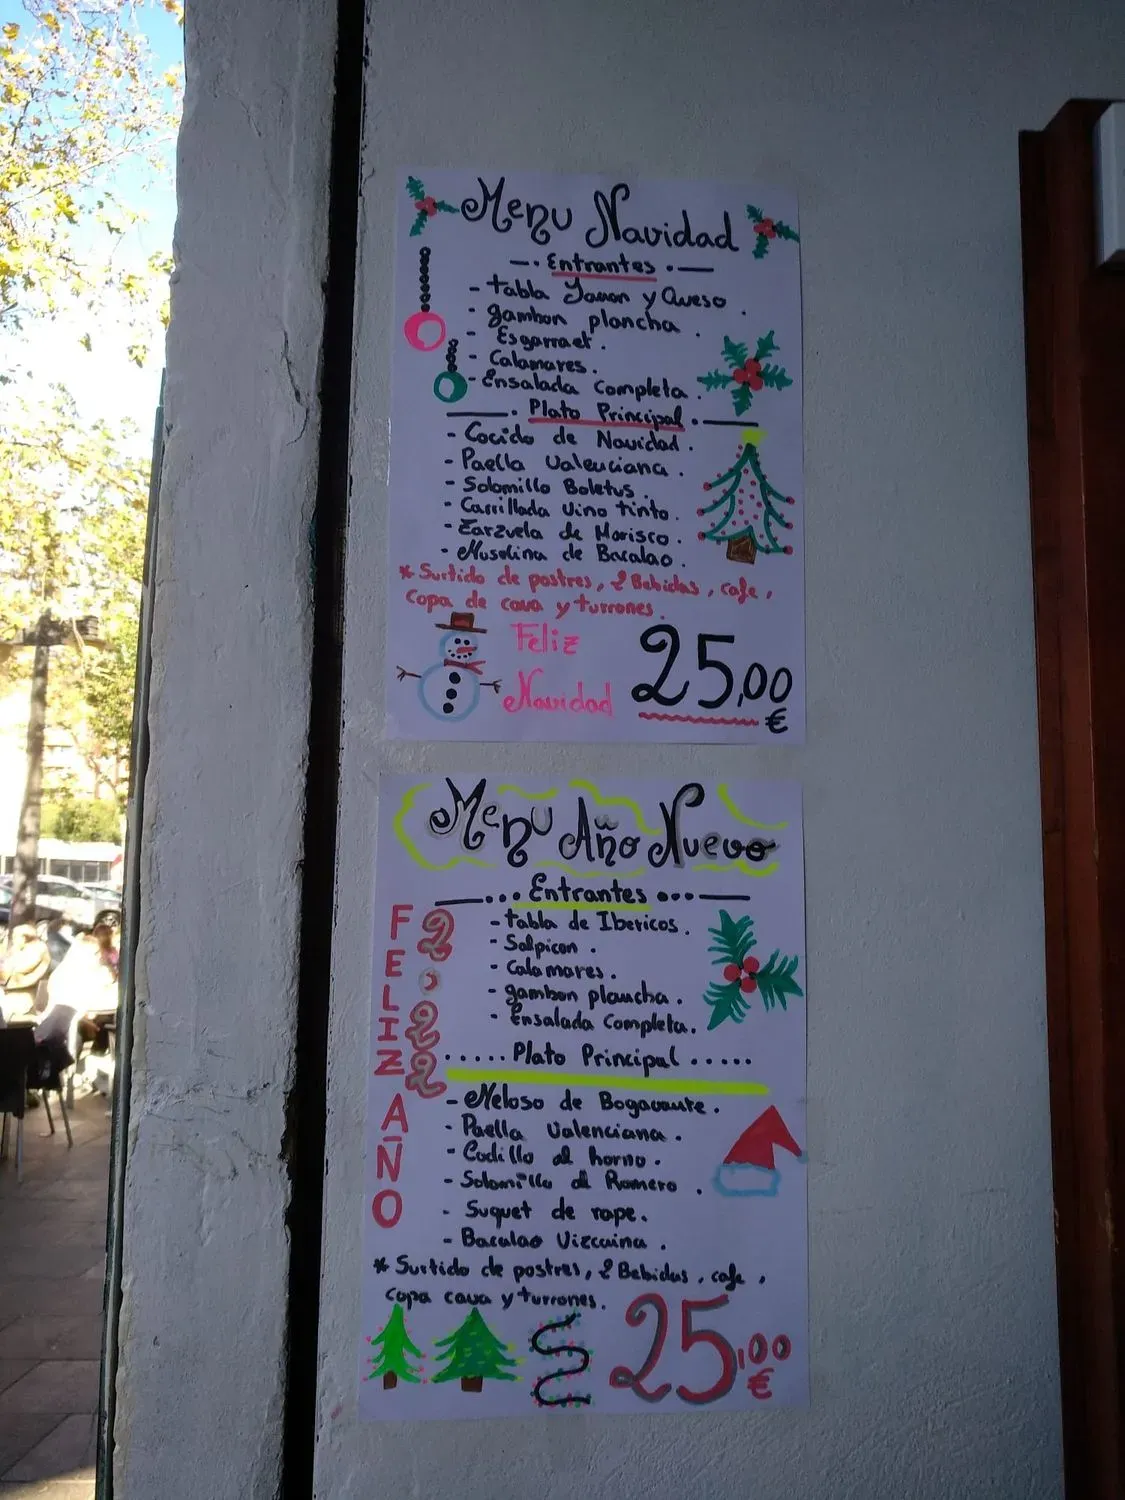 Menu Navidad
Entrantes
- tabla Jamon y Queso.
- gambon plancha.
- Esgarraet.
- Calamares.
- Ensalada Completa.
Plato Principal
- Cocido de Navidad.
- Paella Valenciana.
- Solomillo Boletus.
- Carrillada Vino tinto.
- Zarzuela de Marisco.
- Muselina de Bacalao.
* Surtido de postres, 2 Bebidas, cafe,
copa de cava y turrones.
Feliz
Navidad
25,00
€
Menu Año Nuevo
Entrantes
- tabla de Ibericos.
- Salpicon.
- Calamares.
- gambon plancha.
- Ensalada Completa.
Plato Principal
- Meloso de Bogavante.
- Paella Valenciana.
- Codillo al horno.
- Solomillo al Romero.
- Suquet de rape.
- Bacalao Vizcaina.
* Surtido de postres, 2 Bebidas, cafe,
copa cava y turrones.
FELIZ AÑO
2.022
25,00
€